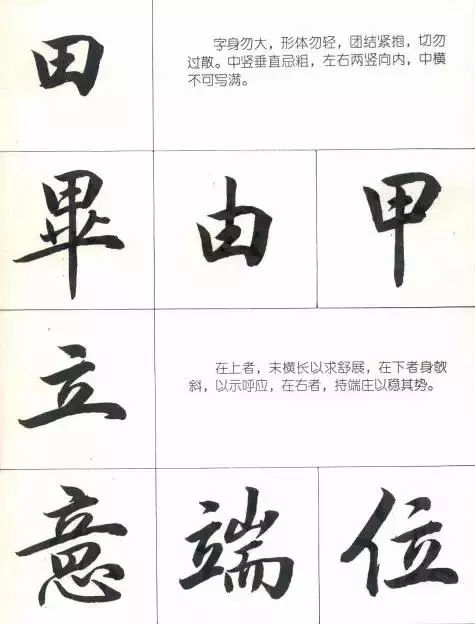 田
字身勿大，形体勿轻，团结紧抱，切勿
过散。中竖垂直忌粗，左右两竖向内，中横
不可写满。
畢 由 甲
立
在上者，末横长以求舒展，在下者身欹
斜，以示呼应，在右者，持端庄以稳其势。
意 端 位